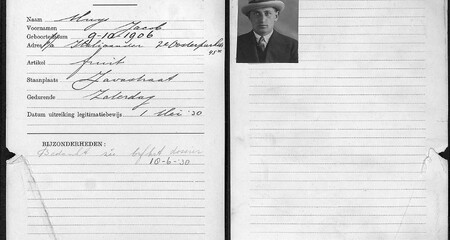 Naam Muys
Voornamen Jacob
Geboortedatum 9-10-1906
Adres p/a 2e Oosterparkstr
95 III
Artikel fruit
Staanplaats Javastraat
Gedurende Zaterdag
Datum uitreiking legitimatiebewijs 1 Mei '30
BIJZONDERHEDEN:
Bedankt zie dossier
10-6-'30